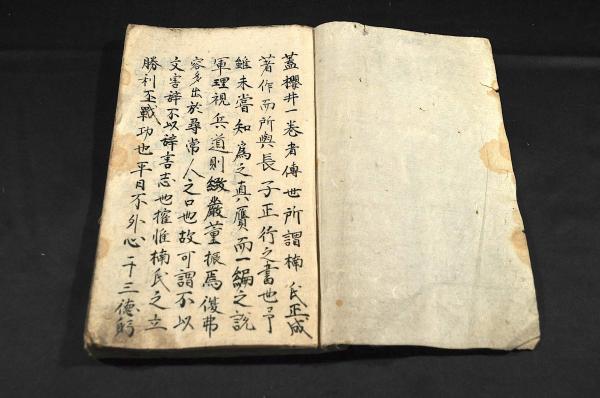 蓋櫻井一巻者傳世所謂楠氏正成
著作而所與長子正行之書也予
雖未嘗知爲之真贋而一編之説
軍理視兵道則緻嚴董振焉復弗
容多出於尋常人之口也故可謂不以
文害辞不以辞害志也搉惟楠氏之立
勝利至戰功也平日不外心于三德躬